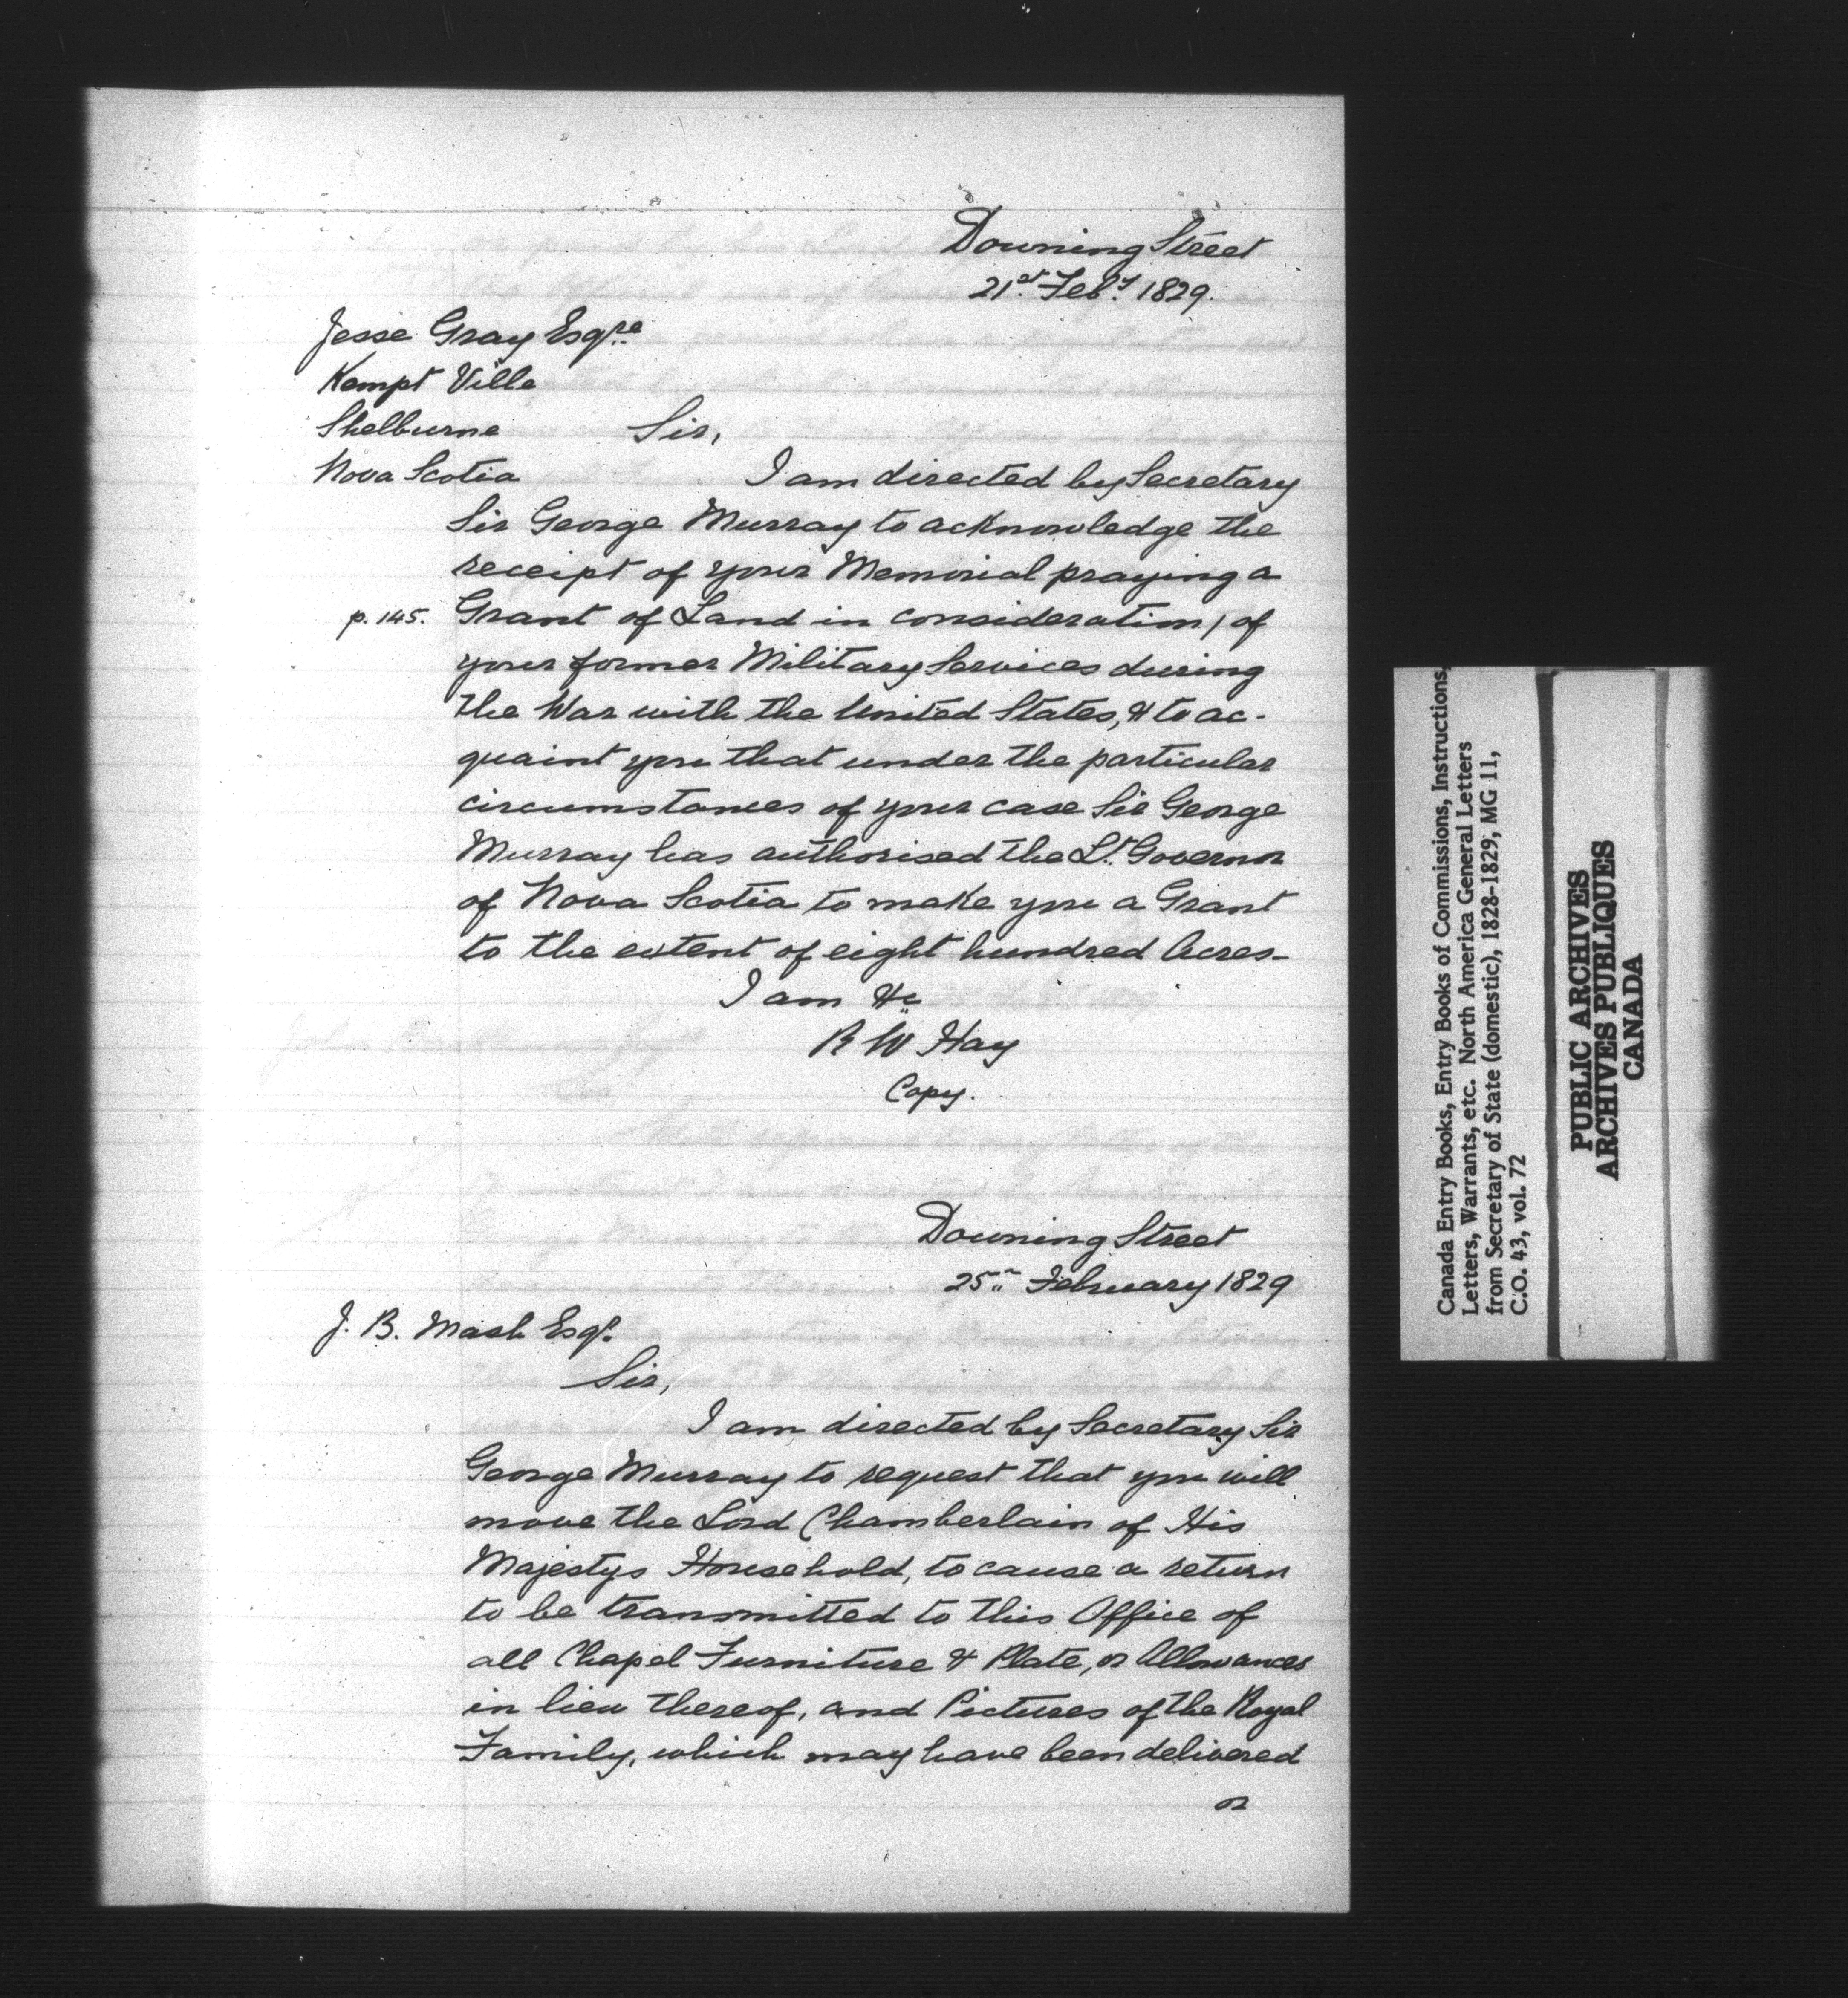 Downing Street
21st Feby. 1829.
Jesse Gray Esqre
Kempt Ville
Shelburne Sir,
Nova Scotia I am directed by Secretary
Sir George Murray to acknowledge the
receipt of your Memorial praying a
p. 145. Grant of Land in consideration / of
your former Military Services during
the War with the United States, & to ac-
quaint you that under the particular
circumstances of your case Sir George
Murray has authorised the Lt. Governor
of Nova Scotia to make you a Grant
to the extent of eight hundred Acres-
I am &c
R W Hay
Copy.
Downing Street
25th February 1829
J. B. Mash Esqr.
Sir,
I am directed by Secretary Sir
George Murray to request that you will
move the Lord Chamberlain of His
Majestys Household, to cause a return
to be transmitted to this Office of
all Chapel Furniture & Plate, or Allowances
in lieu thereof, and Pictures of the Royal
Family, which may have been delivered
or
Canada Entry Books, Entry Books of Commissions, Instructions,
Letters, Warrants, etc. North America General Letters
from Secretary of State (domestic), 1828-1829; MG 11,
C.O. 43, vol. 72
PUBLIC ARCHIVES
ARCHIVES PUBLIQUES
CANADA